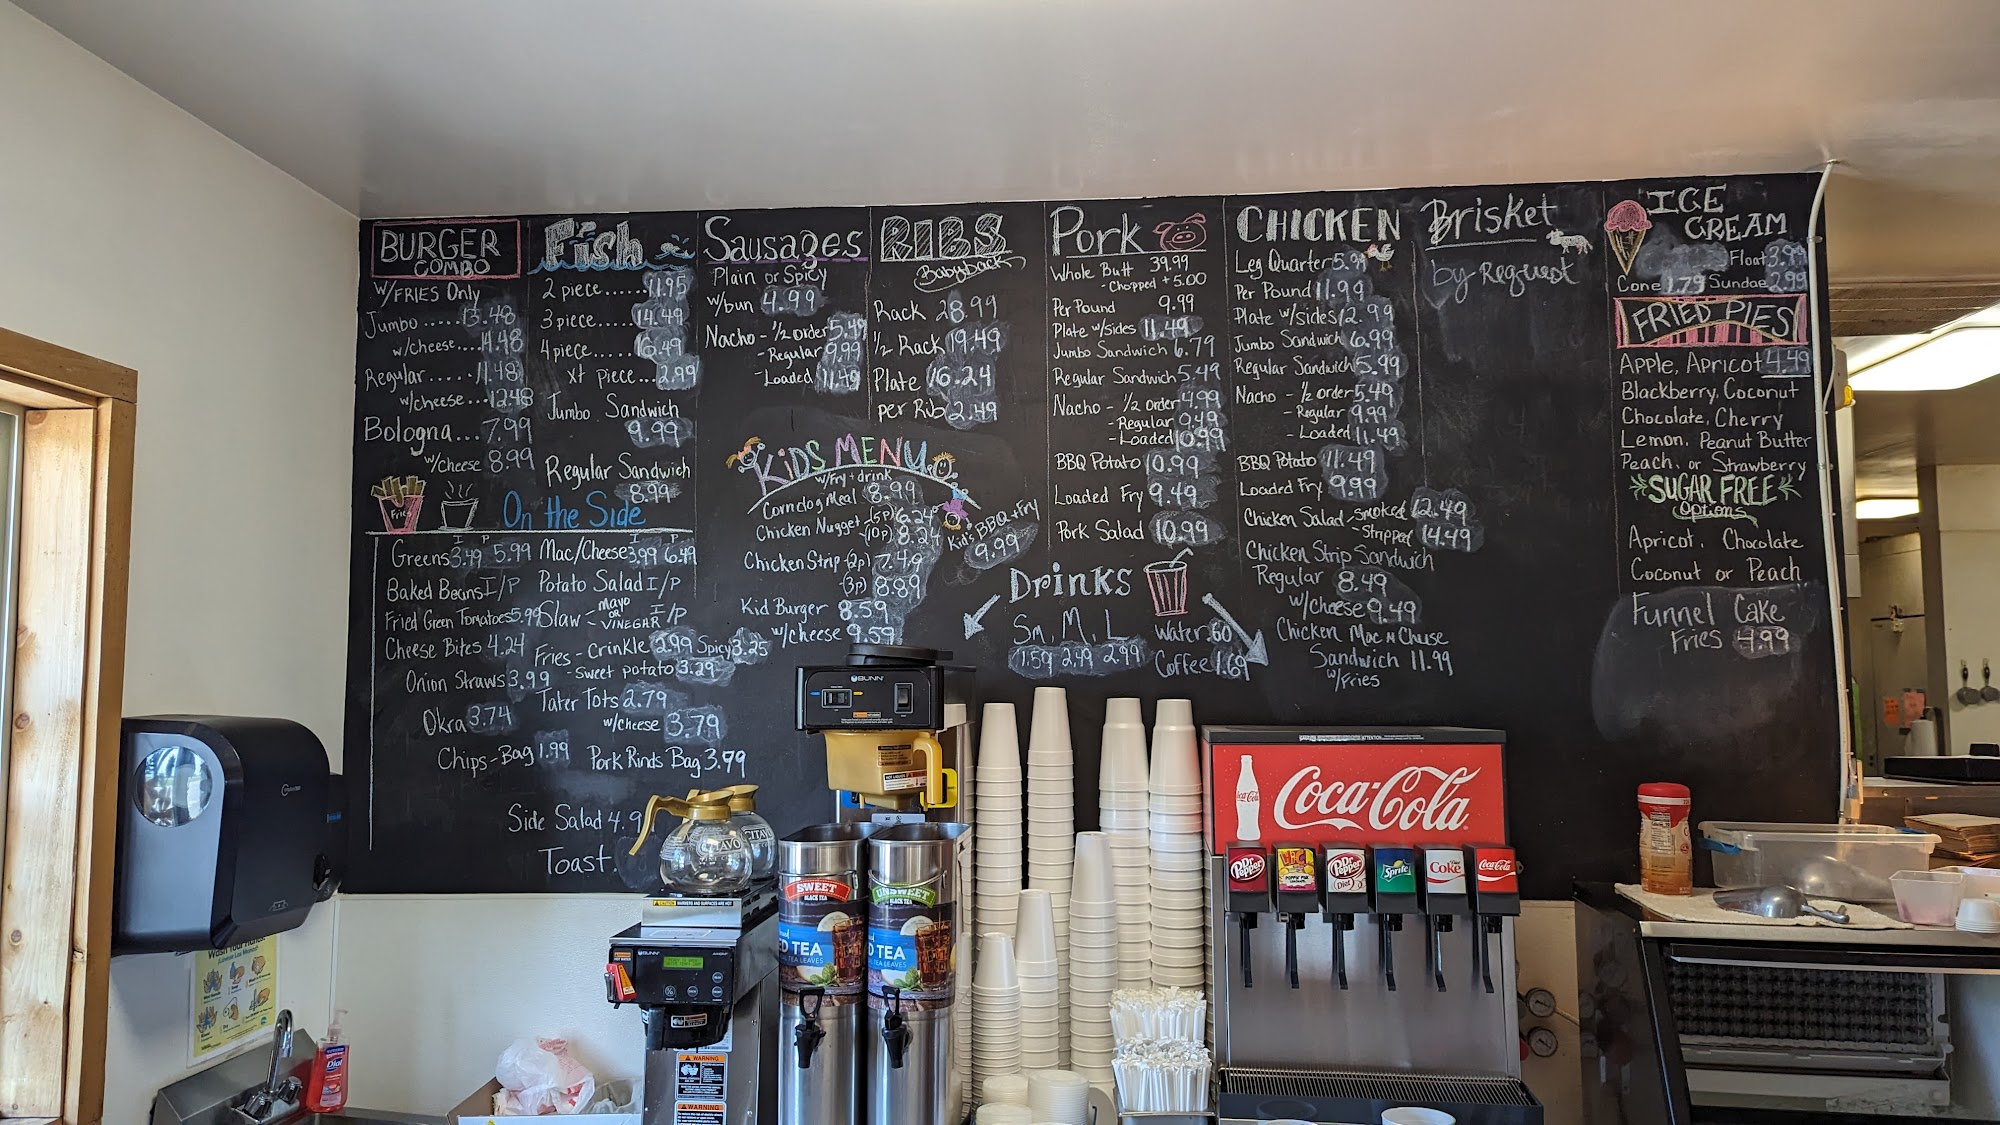 BURGER
COMBO
W/FRIES Only
Jumbo ..... 13.48
w/cheese.... 14.48
Regular ..... 11.48
w/cheese... 12.48
Bologna... 7.99
w/cheese 8.99
Fries
Fish
2 piece...... 11.95
3 piece...... 14.49
4 piece...... 16.49
xt piece... 2.99
Jumbo Sandwich
9.99
Regular Sandwich
8.99
On the Side
I P I P
Greens 3.49 5.99 Mac/Cheese 3.99 6.49
Baked Beans I/P Potato Salad I/P
Fried Green Tomatoes 5.99 Slaw - MAYO OR VINEGAR I/P
Cheese Bites 4.24 Fries - Crinkle 2.99 Spicy 3.25
- Sweet potato 3.29
Onion Straws 3.99
Tater Tots 2.79
Okra 3.74 w/cheese 3.79
Chips - Bag 1.99 Pork Rinds Bag 3.79
Side Salad 4.9
Toast.
Sausages
Plain or Spicy
w/bun 4.99
Nacho - 1/2 order 5.49
- Regular 9.99
- Loaded 11.49
RIBS
Babyback
Rack 28.99
1/2 Rack 19.49
Plate 16.24
per Rib 2.49
KiDS MENU
w/fry + drink
Corndog Meal 8.99
Chicken Nugget - (5p) 6.24
(10p) 8.24
Chicken Strip - (2p) 7.49
(3p) 8.89
Kid Burger 8.59
w/cheese 9.59
Kid's BBQ + Fry
9.99
Pork
Whole Butt 39.99
- Chopped + 5.00
Per Pound 9.99
Plate w/sides 11.49
Jumbo Sandwich 6.79
Regular Sandwich 5.49
Nacho - 1/2 order 4.99
- Regular 9.49
- Loaded 10.99
BBQ Potato 10.99
Loaded Fry 9.49
Pork Salad 10.99
Drinks
Sm, M, L Water .60
1.59 2.49 2.99 Coffee 1.69
CHICKEN
Leg Quarter 5.99
Per Pound 11.99
Plate w/sides 12.99
Jumbo Sandwich 6.99
Regular Sandwich 5.99
Nacho - 1/2 order 5.49
- Regular 9.99
- Loaded 11.49
BBQ Potato 11.49
Loaded Fry 9.99
Chicken Salad - Smoked 12.49
- Stripped 14.49
Chicken Strip Sandwich
Regular 8.49
w/cheese 9.49
Chicken Mac N Cheese
Sandwich 11.99
w/Fries
Brisket
by Request
ICE
CREAM
Float 3.99
Cone 1.79 Sundae 2.99
FRIED PIES
Apple, Apricot 4.49
Blackberry, Coconut
Chocolate, Cherry
Lemon, Peanut Butter
Peach, or Strawberry
SUGAR FREE
Options
Apricot, Chocolate
Coconut or Peach
Funnel Cake
Fries 4.99
BUNN
SWEET
BLACK TEA
UNSWEET
BLACK TEA
D TEA
TEA LEAVES
D TEA
TEA LEAVES
BUNN
WARNING
WARNING
Coca-Cola
Dr Pepper
Dr Pepper
Diet
Sprite
Coke
Coca-Cola
Dial